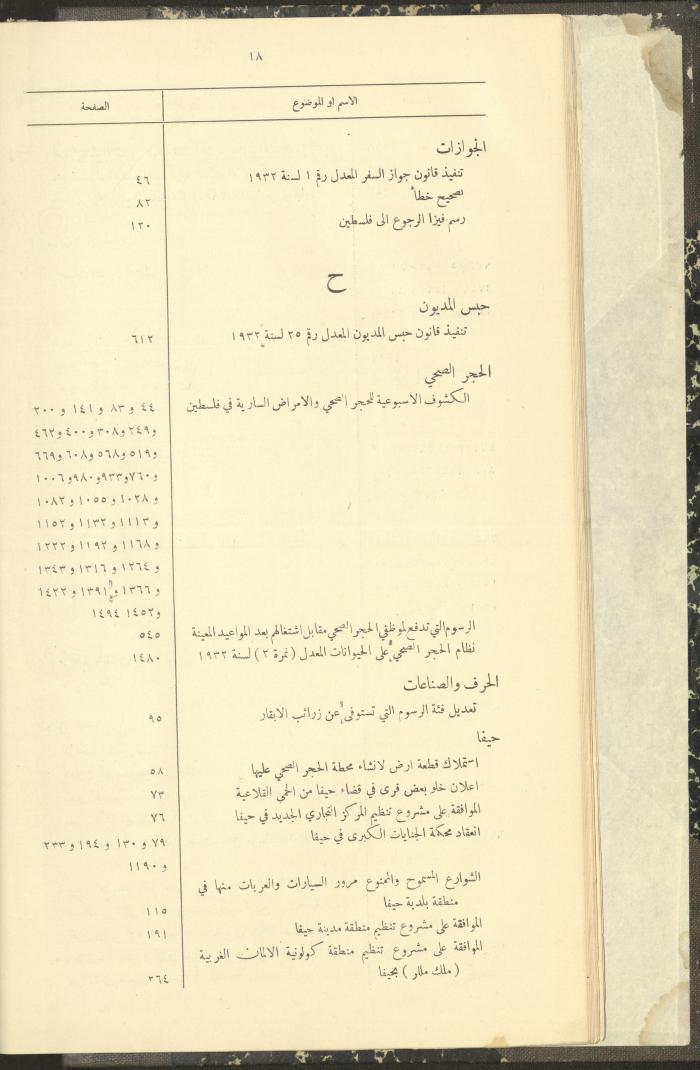 ١٨
الاسم او الموضوع	الصفحة
الجوازات
تنفيذ قانون جواز السفر المعدل رقم ١ لسنة ١٩٣٢	٤٦
تصحيح خطأ	٨٢
رسم فيزا الرجوع الى فلسطين	١٢٠
ح
حبس المديون
تنفيذ قانون حبس المديون المعدل رقم ٢٥ لسنة ١٩٣٢	٦١٢
الحجر الصحي
الكشوف الاسبوعية للحجر الصحي والامراض السارية في فلسطين	٤٤ و ٨٣ و ١٤١ و ٢٠٠
و٢٤٩ و٣٠٨ و٤٠٠ و٤٦٢
و٥١٩ و٥٦٨ و٦٠٨ و٦٦٩
و٧٦٠ و٩٣٣ و٩٨٠ و١٠٠٦
و ١٠٢٨ و ١٠٥٥ و ١٠٨٢
و ١١١٣ و ١١٣٢ و ١١٥٢
و ١١٦٨ و ١١٩٢ و ١٢٢٢
و ١٢٦٤ و ١٣١٦ و ١٣٤٣
و ١٣٦٦ و ١٣٩١ و ١٤٢٢
و١٤٥٢ و ١٤٩٤
الرسوم التي تدفع لموظفي الحجر الصحي مقابل اشتغالهم بعد المواعيد المعينة	٥٤٥
نظام الحجر الصحي على الحيوانات المعدل ( نمرة ٢ ) لسنة ١٩٣٢	١٤٨٠
الحرف والصناعات
تعديل فئة الرسوم التي تستوفى عن زرائب الابقار	٩٥
حيفا
استملاك قطعة ارض لانشاء محطة الحجر الصحي عليها	٥٨
اعلان خلو بعض قرى في قضاء حيفا من الحمى القلاعية	٧٣
الموافقة على مشروع تنظيم المركز التجاري الجديد في حيفا	٧٦
انعقاد محكمة الجنايات الكبرى في حيفا	٧٩ و ١٣٠ و ١٩٤ و ٢٣٣
و ١١٩٠
الشوارع المسموح والممنوع مرور السيارات والعربات منها في
منطقة بلدية حيفا	١١٥
الموافقة على مشروع تنظيم منطقة مدينة حيفا	١٩١
الموافقة على مشروع تنظيم منطقة كولونية الالمان الغربية
( ملك مللر ) بحيفا	٣٦٤